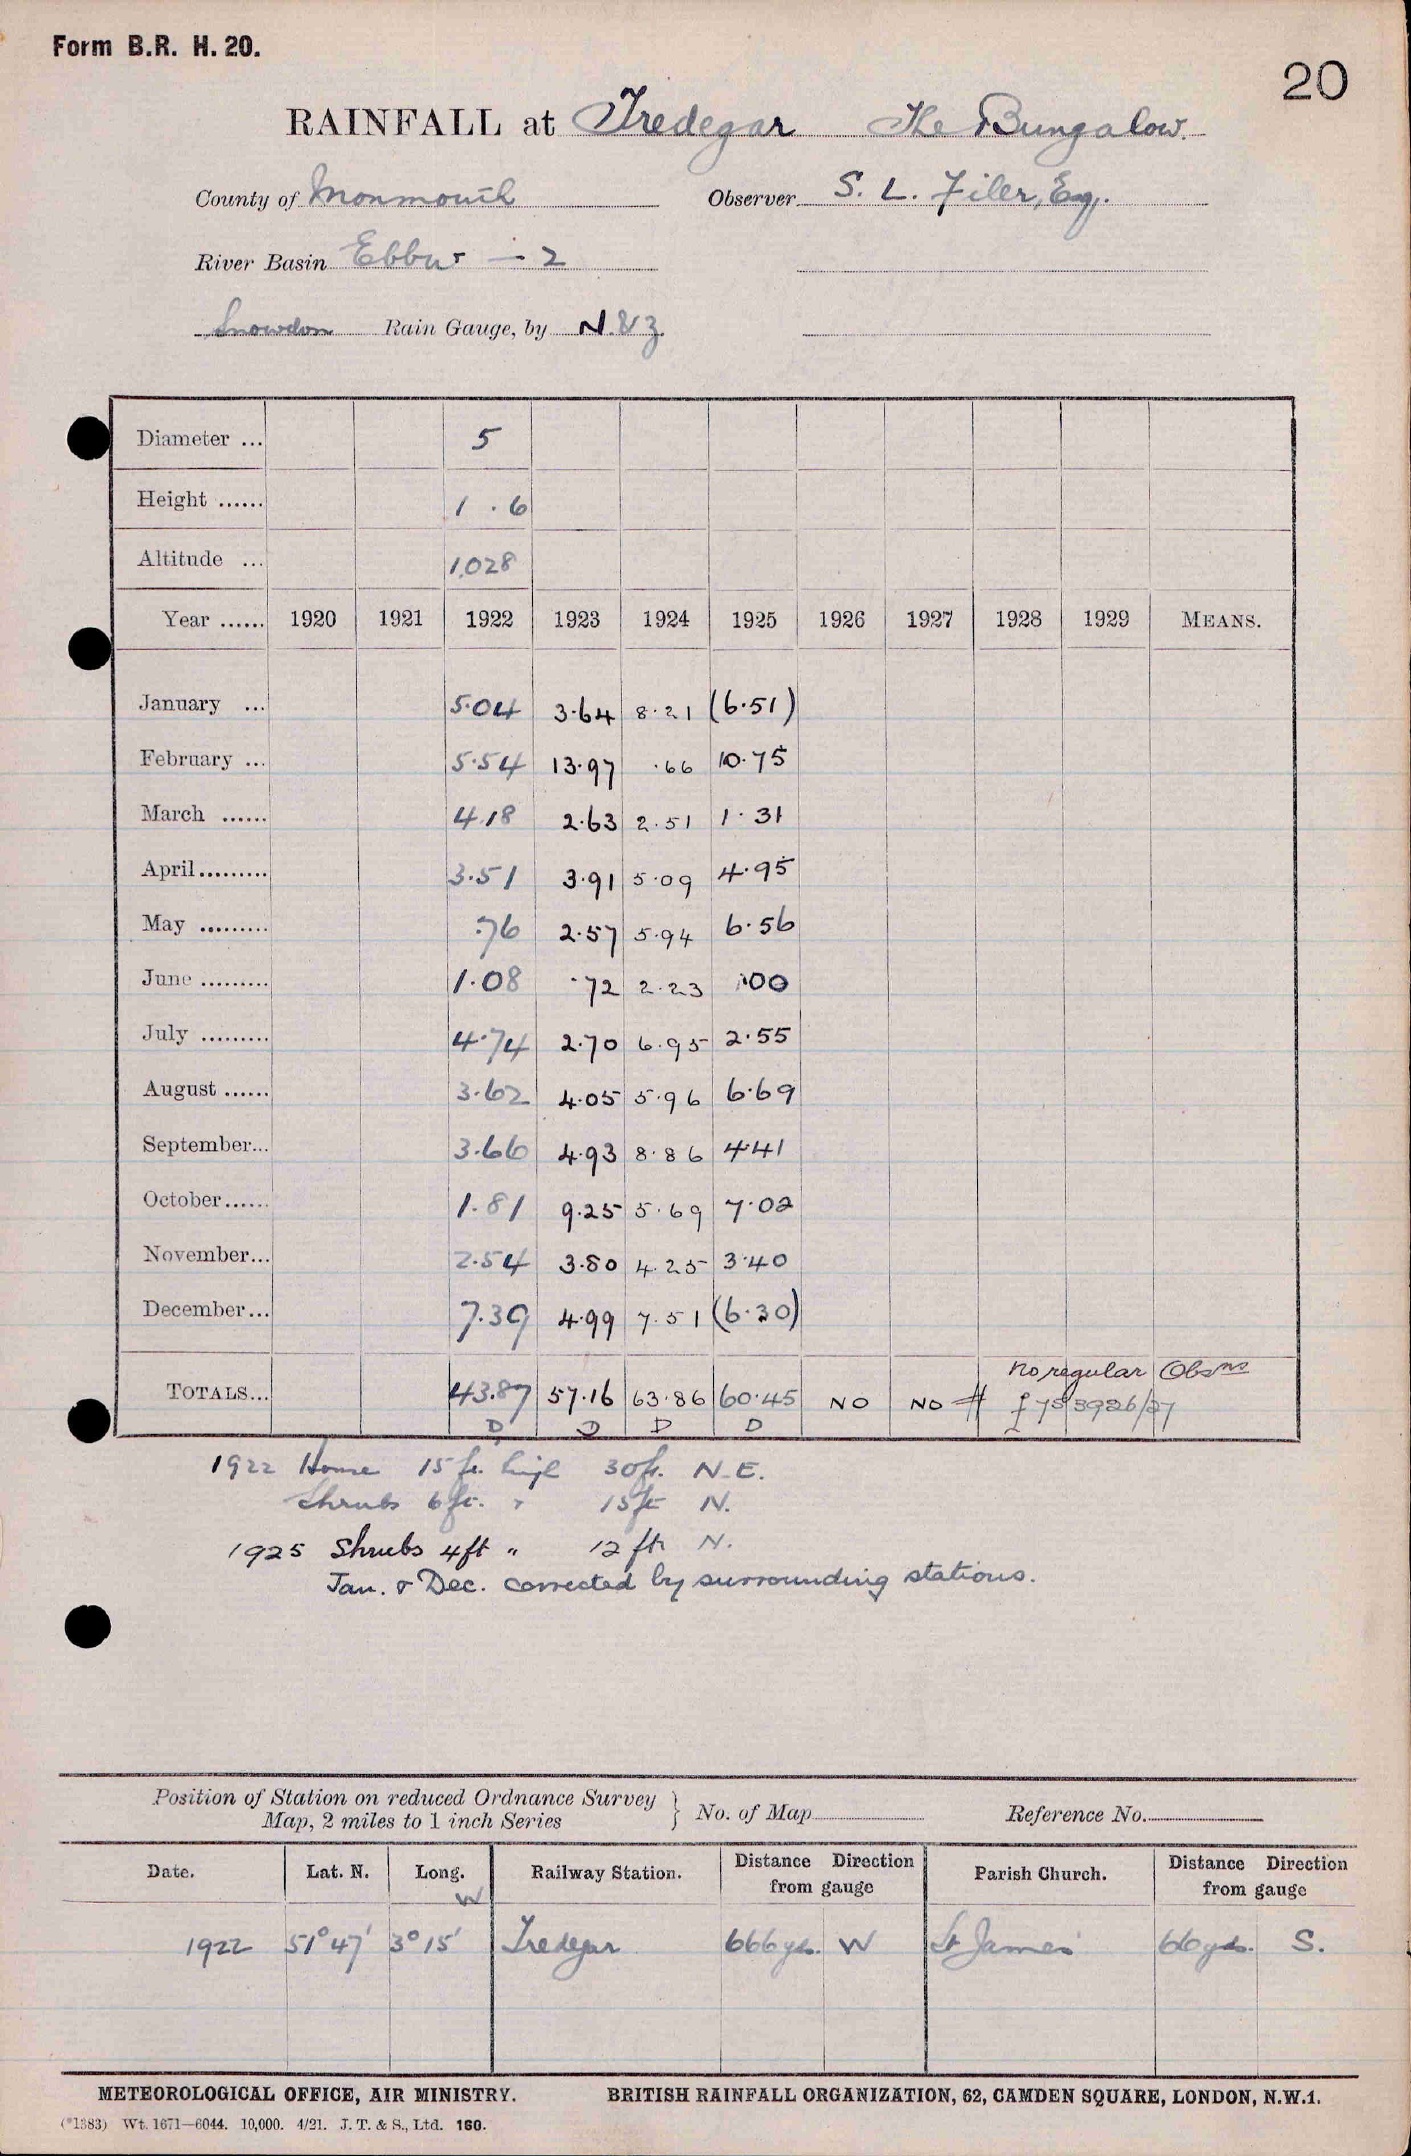 Form B.R. H. 20.
20
RAINFALL at Tredegar The Bungalow.
County of Monmouth Observer S. L. Filer, Esq.
River Basin Ebbw — 2
Snowdon Rain Gauge, by N. & Z.
Diameter ... 5
Height ...... 1 . 6
Altitude ... 1,028
Year ...... 1920 1921 1922 1923 1924 1925 1926 1927 1928 1929 MEANS.
January ... 5.04 3.64 8.21 (6.51)
February ... 5.54 13.97 .66 10.75
March ...... 4.18 2.63 2.51 1.31
April ......... 3.51 3.91 5.09 4.95
May ......... .76 2.57 5.94 6.56
June ......... 1.08 .72 2.23 .00
July ......... 4.74 2.70 6.95 2.55
August ...... 3.62 4.05 5.96 6.69
September... 3.66 4.93 8.86 4.41
October...... 1.81 9.25 5.69 7.02
November... 2.54 3.80 4.25 3.40
December... 7.39 4.99 7.51 (6.30)
no regular Obsns
TOTALS... 43.87 57.16 63.86 60.45 NO NO #
D D D D
1922 House 15 ft. high 30 ft. N.E.
Shrubs 6 ft. " 15 ft N.
1925 Shrubs 4ft " 12 ft N.
Jan. & Dec. corrected by surrounding stations.
Position of Station on reduced Ordnance Survey Map, 2 miles to 1 inch Series } No. of Map Reference No.
Date. Lat. N. Long. W Railway Station. Distance Direction from gauge Parish Church. Distance Direction from gauge
1922 51° 47' 3° 15' Tredegar 666 yds. W St James' 66 yds. S.
METEOROLOGICAL OFFICE, AIR MINISTRY. BRITISH RAINFALL ORGANIZATION, 62, CAMDEN SQUARE, LONDON, N.W.1.
(*1383) Wt. 1671—6044. 10,000. 4/21. J. T. & S., Ltd. 160.